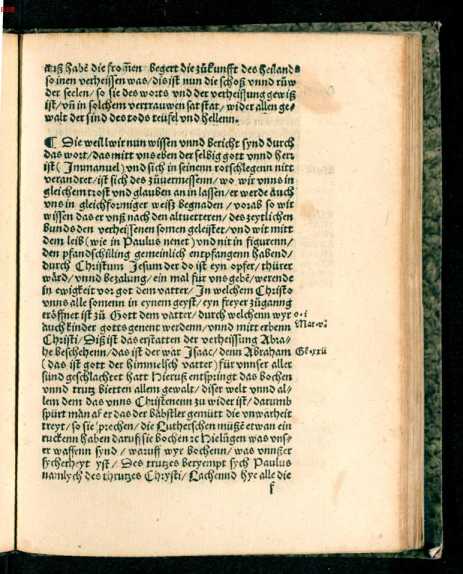 wiß habē die fromēn begert die zükunfft des heilands
so inen verheissen was/dis ist nun die schoß vnnd rüw
der seelen/so sie des worts vnd der verheissung gewiß
ist/vn̄ in solchem vertrauwen sat stat/wider allen ge⸗
walt der sind des tods teüfel vnd hellenn.
¶ Die weil wir nun wissen vnnd bericht synd durch
das wort/das mitt vns eben der selbig gott vnnd herr
ist (Immanuel) vnd sich in seinenn rotschlegenn nitt
verandret/ist sich des zůuermessenn/wo wir vnns in
gleichem trost vnd glauben an in lassen/er werde auch
vns in gleichformiger weiß begnaden/vorab so wit
wissen das er vnß nach den altuetteren/des zeytlichen
bunds den verheissenen somen geleistet/vnd wit mitt
dem leib (wie in Paulus nenet) vnd nit in figurenn/
den pfandschilling gemeinlich entpfangenn habend/
durch Christum Jesum der do ist eyn opfer/thürer
ward/vnnd bezalung/ein mal für vns gebē/werende
in ewigkeit vor got dem vatter/In welchem Christo
vnns alle somenn in eynem geyst/eyn freyer zůganng
eröffnet ist zů Gott dem vatter/durch welchenn wyr
auch kinder gotts genent werdenn/vnnd mitt erbenn
Christi/Diß ist das erstatten der verheissung Abra⸗
he beschehenn/das ist der war Isaac/denn Abraham
(das ist gott der himmelsch vatter) für vnnser aller
sünd geschlachtet hatt Hieruß entspringt das bochen
vnnd trutz bietten allem gewalt/diser welt vnnd al⸗
lem dem das vnns Christenenn zu wider ist/darumb
spürt mān aber das der bäbstler gemütt die vnwarheit
treyt/so sie sprechen/die Lutherschen müßē etwan ein
ruckenn haben daruff sie bochen ꝛc Hielügen was vns⸗
er waffenn synd/waruff wyr bochenn/was vnnßer
sycherheyt yst/Des trutzes beryempt sych Paulus
namlych des thrutzes Chrysti/Lachennd hye alle die
Mat.vi
Gē.xxii
f